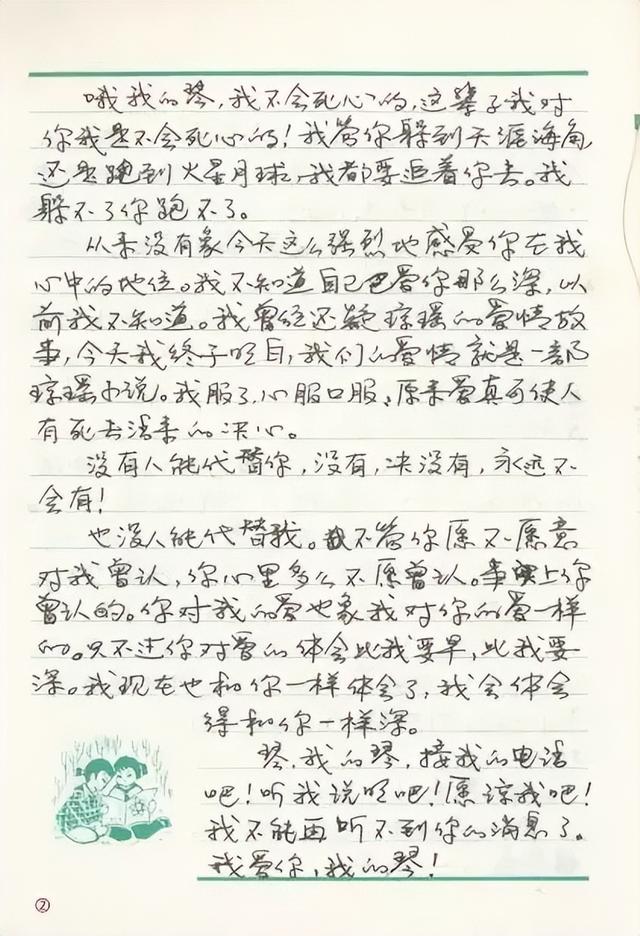 哦我的琴，我不会死心的，这辈子我对
你我是不会死心的！我管你躲到天涯海角
还是跑到火星月球，我都要追着你去。我
躲不了你跑不了。
从来没有象今天这么强烈地感受你在我
心中的地位。我不知道自己爱你那么深，以
前我不知道。我曾经还疑琼瑶的爱情故
事，今天我终于明白，我们的爱情就是一部
琼瑶小说。我服了，心服口服，原来爱真可使人
有死去活来的决心。
没有人能代替你，没有，决没有，永远不
会有！
也没人能代替我。不管你愿不愿意
对我曾认，你心里多么不愿曾认。事实上你
曾认的。你对我的爱也象我对你的爱一样
的。只不过你对爱的体会比我要早，比我要
深。我现在也和你一样体会了，我会体会
得和你一样深。
琴，我的琴，接我的电话
吧！听我说明吧！愿谅我吧！
我不能再听不到你的消息了。
我爱你，我的琴！
②